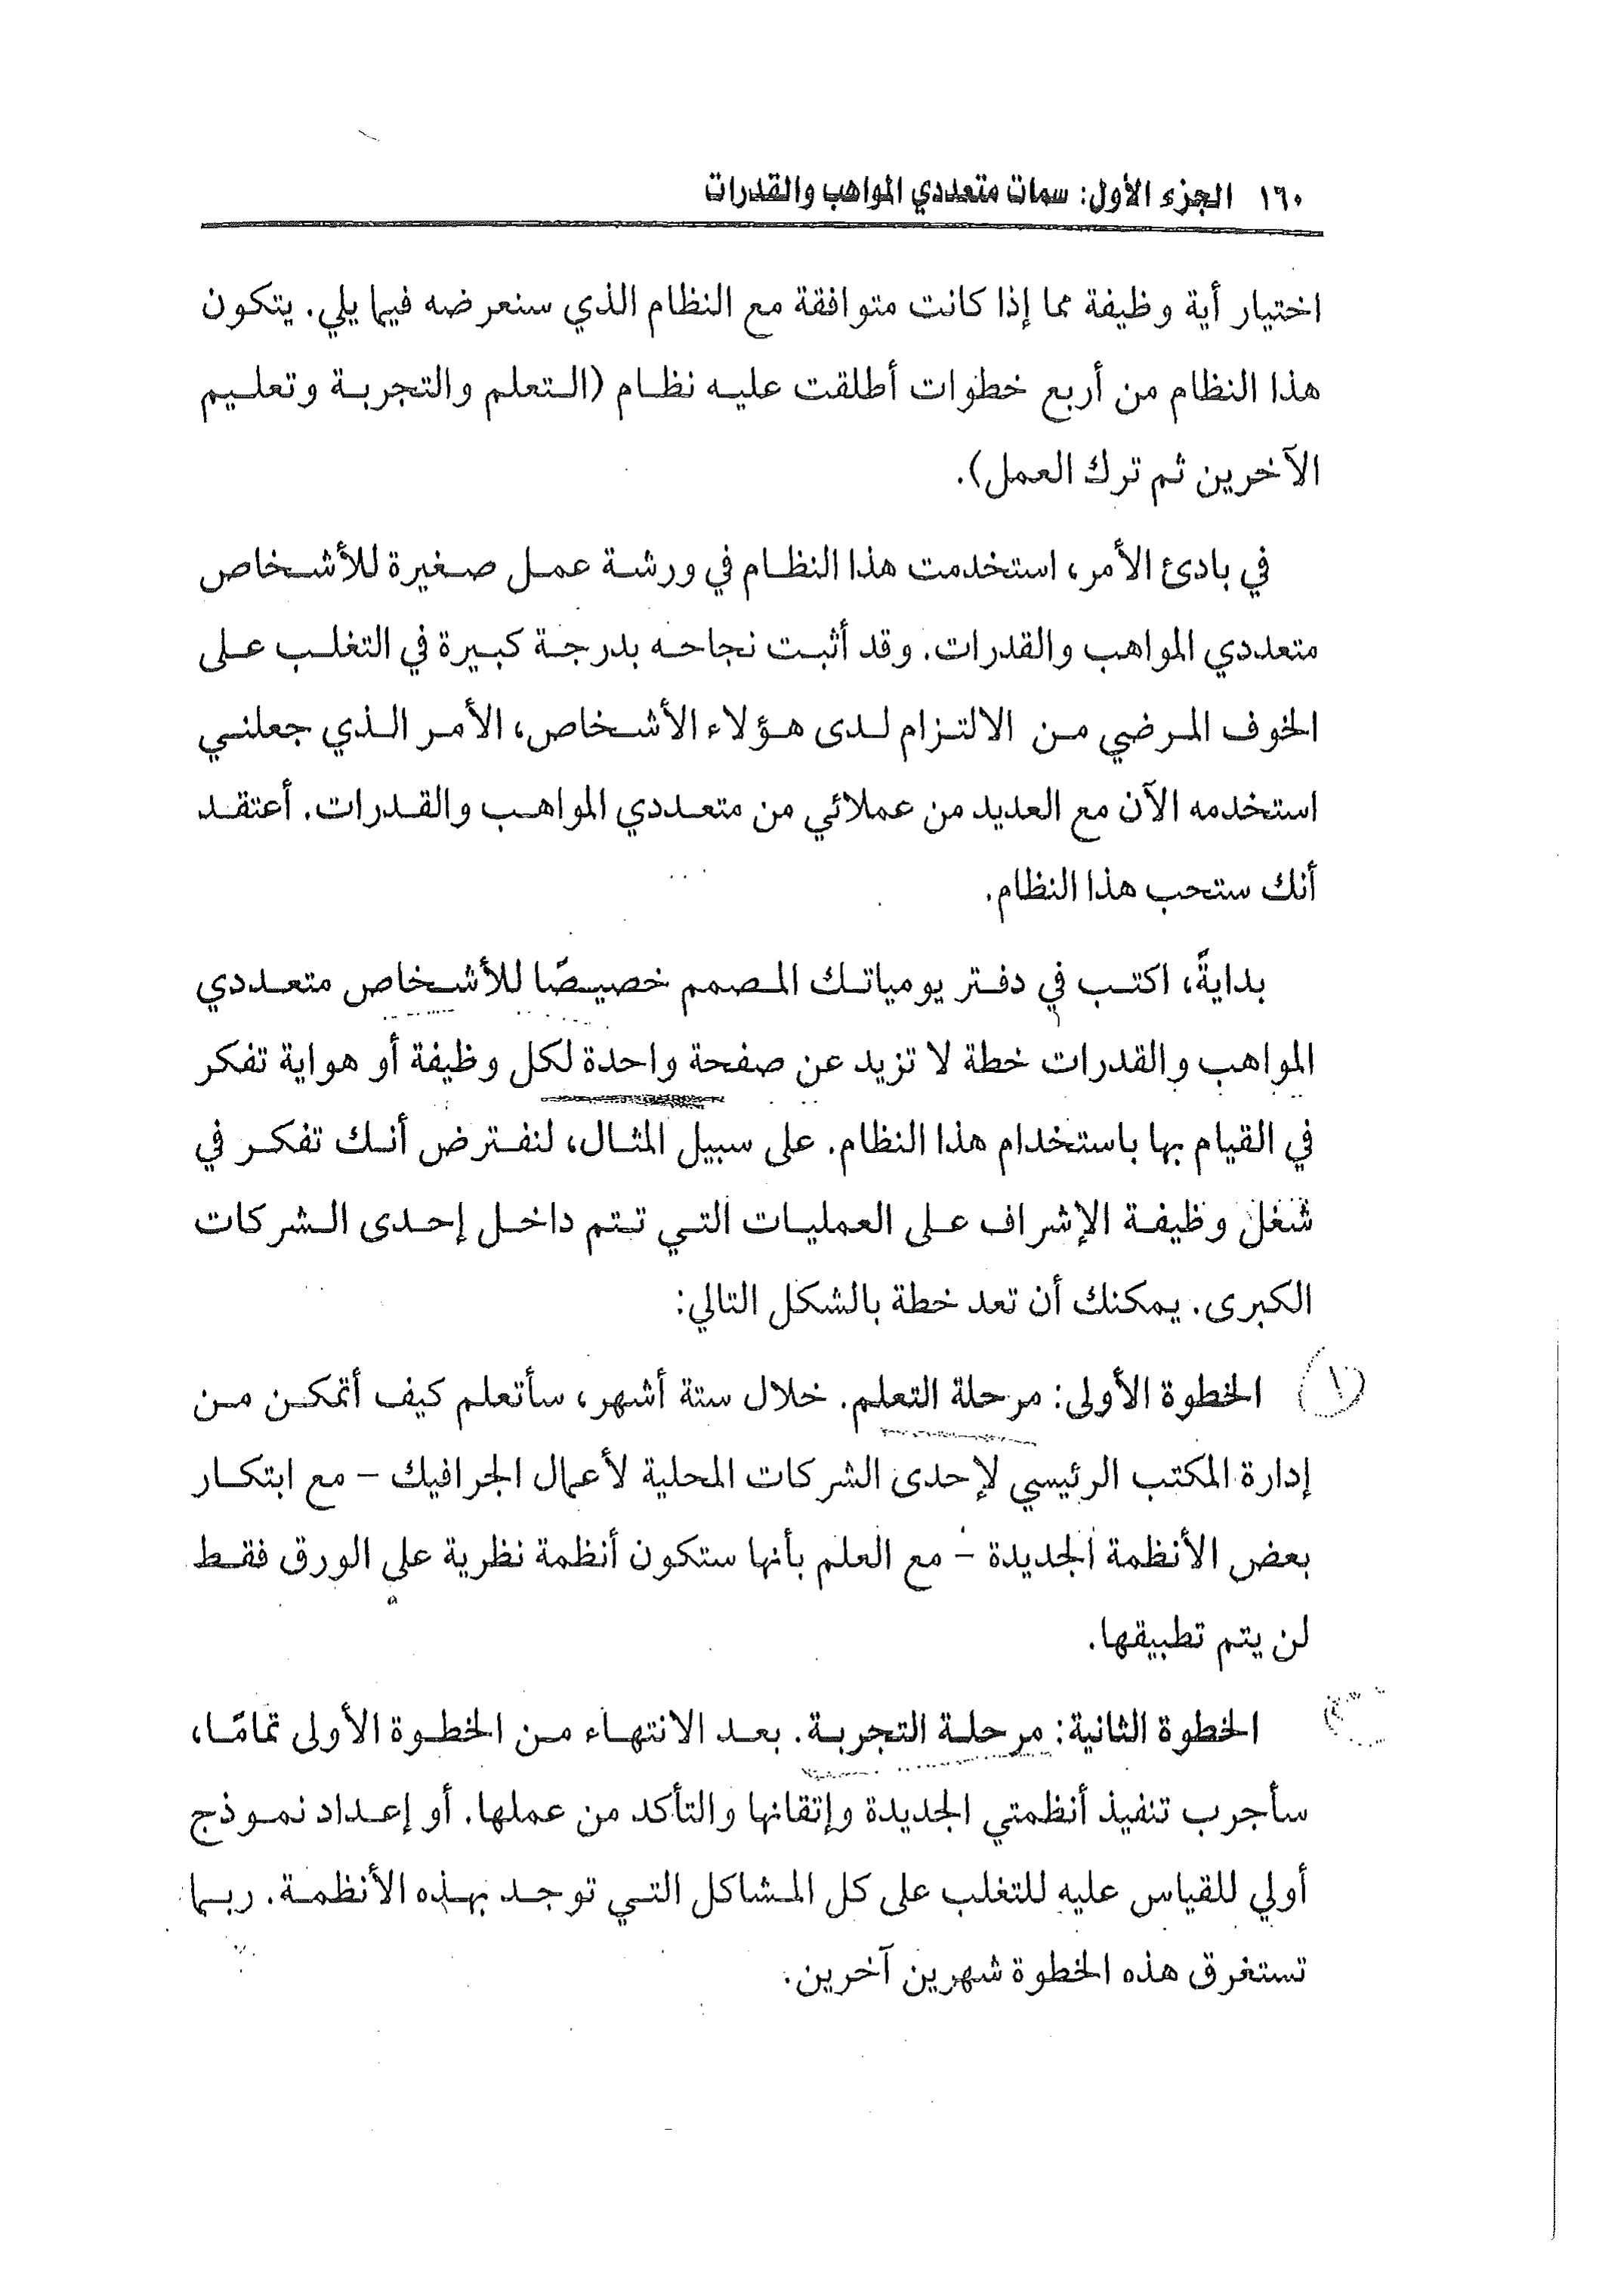 ١٦٠ الجزء الأول: سمات متعددي المواهب والقدرات
اختيار أية وظيفة مما إذا كانت متوافقة مع النظام الذي سنعرضه فيما يلي. يتكون
هذا النظام من أربع خطوات أطلقت عليه نظام (التعلم والتجربة وتعليم
الآخرين ثم ترك العمل).
في بادئ الأمر، استخدمت هذا النظام في ورشة عمل صغيرة للأشخاص
متعددي المواهب والقدرات. وقد أثبت نجاحه بدرجة كبيرة في التغلب على
الخوف المرضي من الالتزام لدى هؤلاء الأشخاص، الأمر الذي جعلني
استخدمه الآن مع العديد من عملائي من متعددي المواهب والقدرات. أعتقد
أنك ستحب هذا النظام.
بدايةً، اكتب في دفتر يومياتك المصمم خصيصًا للأشخاص متعددي
المواهب والقدرات خطة لا تزيد عن صفحة واحدة لكل وظيفة أو هواية تفكر
في القيام بها باستخدام هذا النظام. على سبيل المثال، لنفترض أنك تفكر في
شغل وظيفة الإشراف على العمليات التي تتم داخل إحدى الشركات
الكبرى. يمكنك أن تعد خطة بالشكل التالي:
١ الخطوة الأولى: مرحلة التعلم. خلال ستة أشهر، سأتعلم كيف أتمكن من
إدارة المكتب الرئيسي لإحدى الشركات المحلية لأعمال الجرافيك – مع ابتكار
بعض الأنظمة الجديدة – مع العلم بأنها ستكون أنظمة نظرية على الورق فقط
لن يتم تطبيقها.
الخطوة الثانية: مرحلة التجربة. بعد الانتهاء من الخطوة الأولى تمامًا،
سأجرب تنفيذ أنظمتي الجديدة وإتقانها والتأكد من عملها. أو إعداد نموذج
أولي للقياس عليه للتغلب على كل المشاكل التي توجد بهذه الأنظمة. ربما
تستغرق هذه الخطوة شهرين آخرين.